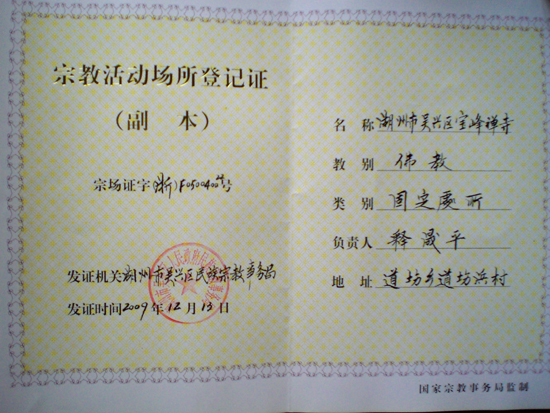 宗教活动场所登记证
（副 本）
宗场证字(浙)F0500400 号
发证机关 湖州市吴兴区民族宗教事务局
发证时间 2009 年 12 月 13 日
名 称 湖州市吴兴区宝峰禅寺
教 别 佛教
类 别 固定处所
负责人 释晟平
地 址 道场乡道场浜村
国家宗教事务局监制